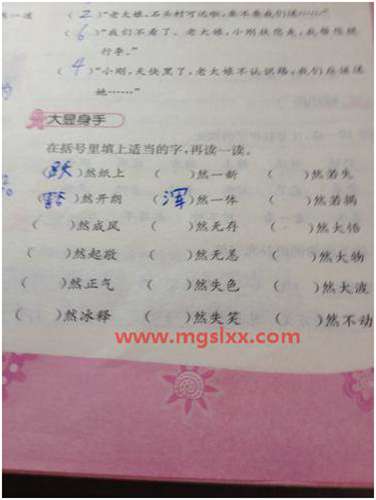 一遍
(2)“老大娘,石头村可远啦,要不要我们送……”
(6)“我们不看了。老大娘,小刚扶您走,我帮您提
行李。”
(4)“小刚,天快黑了,老大娘不认识路,我们应该送
她……”
大显身手
在括号里填上适当的字,再读一读。
(跃)然纸上 ( )然一新 ( )然若失
(豁)然开朗 (浑)然一体 ( )然若揭
( )然成风 ( )然无存 ( )然大悟
( )然起敬 ( )然无恙 ( )然大物
( )然正气 ( )然失色 ( )然大波
( )然冰释 ( )然失笑 ( )然不动
www.mgslxx.com